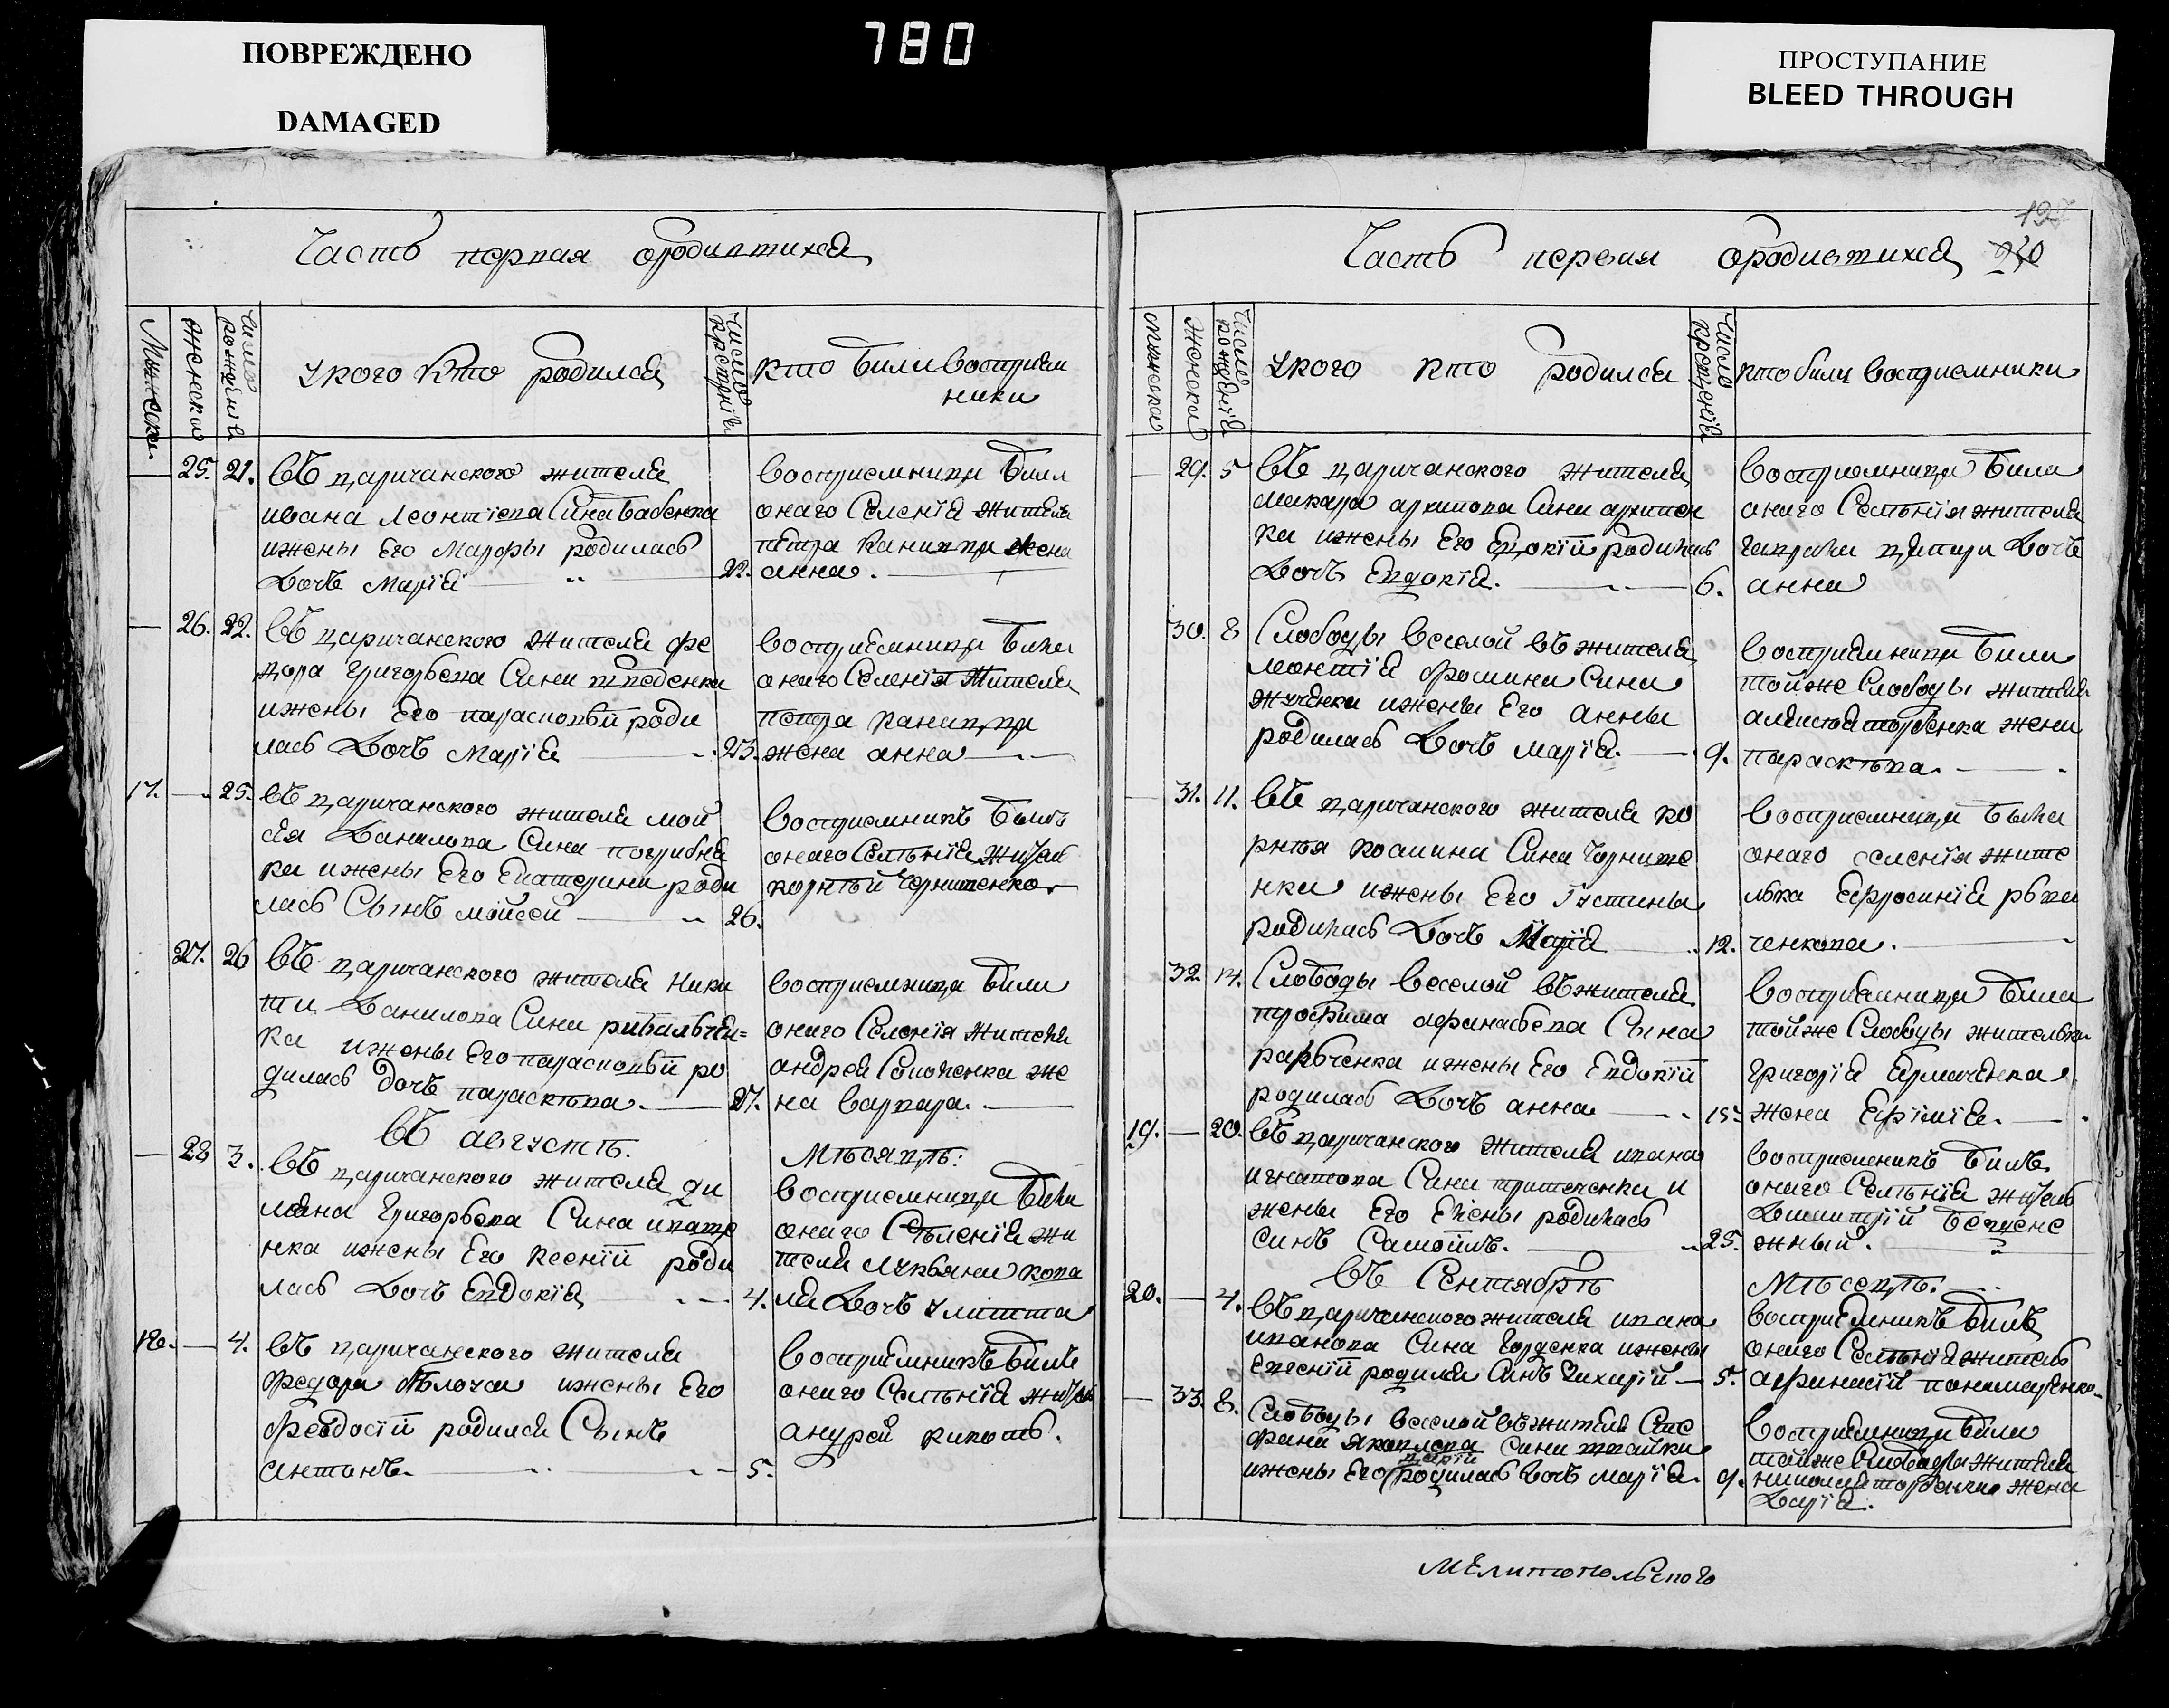 ПОВРЕЖДЕНО
DAMAGED
780
ПРОСТУПАНИЕ
BLEED THROUGH
Часть первая ородивтихся
Мужеска
женски
число рождения
укого кто родился
число крещенія
кто били восприем
ники
25. 21. въ царичанского жителя
ивана леонтіева Сина бабенка
ижены Его Марфы родилась
Дочь Марія 22.
восприемница била
онаго Селенія жителя
петра жена
анна.
26. 22. въ царичанского жителя фе
дора григорьева Сина
ижены Его парасковіи роди
лась Дочь Марія 23.
восприемница била
онаго Селенія жителя
петра
жена анна
17. 25. въ царичанского жителя мой
сея Данилова Сина погрибня
ка ижены Его Екатерини роди
лась Сынъ мойсей 26.
восприемникъ билъ
онаго Селенія житель
корнѣй Чернишенко
27. 26 въ царичанского жителя Ники
ти Данилова Сина рибальчен=
ка ижены Его парасковіи ро
дилась дочь парасківа. 27.
восприемница била
онаго Селенія жителя
андрея же
на варвара.
въ августѣ. Мѣсяцѣ:
28 3. въ царичанского жителя ди
мяна григорьева Сина игнате
нка ижены Его ксеніи роди
лась Дочь Евдокія 4.
восприемница била
онаго Селенія жи
теля лукьяна кова
ля Дочь улита
18. 4. въ царичанского жителя
федора ижены Его
феодосіи родился Сынъ
антонъ. 5.
восприемникъ билъ
онаго Селенія житель
андрей
127
240
Часть первая ородивтихся
мужеска
женски
число рожденія
укого кто родился
число крещенія
кто били восприемники
29. 5 въ царичанского жителя
макара архипова Сина архипен
ка ижены Его Евдокіи родилась
Дочь Евдокія. 6.
восприемница била
онаго Селенія жителя
Дочь
анна
30. 8 Слободы веселой въ жителя
леонтія фомина Сина
жученка ижены Его анны
родилась Дочь марія. 9.
восприемница била
тойже Слободы жителя
алексея жена
парасківа.
31. 11. въ царичанского жителя ко
рнѣя козмина Сина Чернише
нка ижены Его Іустины
родилась Дочь Марія 12.
восприемница била
онаго селенія жите
лька Ефросинія
ченкова.
32. 14. Слободы веселой въ жителя
трофима афанасьева Сына
ижены Его Евдокіи
родилась Дочь анна 15.
восприемница била
тойже Слободы жителька
григорія Ермаченка
жена Ефімія.
19. 20. въ царичанского жителя ивана
игнатова Сина и
жены Его Елены родилась
Синъ Самойлъ. 25.
восприемникъ билъ
онаго Селенія житель
Димитрій
жный.
въ Сентябрѣ Мѣсецѣ.
20. 4. въ царичанского жителя ивана
иванова Сина горденка ижены
родился Синъ Захарій 5.
восприемникъ билъ
онаго Селенія житель
афанасій понамаренко
33. 8. Слободы веселой въ жителя Сте
фана яковлева Сина
ижены Его дарии родилась Дочь марія. 9.
восприемница била
тойже Слободы жителя
жена
Дарія.
Мелитопольского